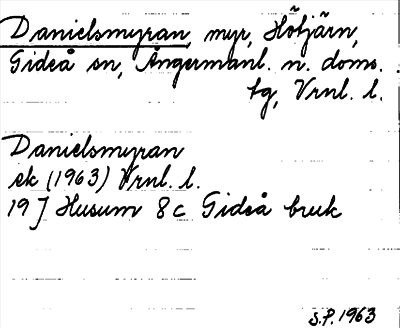 Danielsmyran, myr, Hötjärn,
Gideå sn, Ångermanl. n. doms.
tg, Vrnl. l.
Danielsmyran
ek (1963) Vrnl. l.
19 J Husum 8c Gideå bruk
S.P. 1963